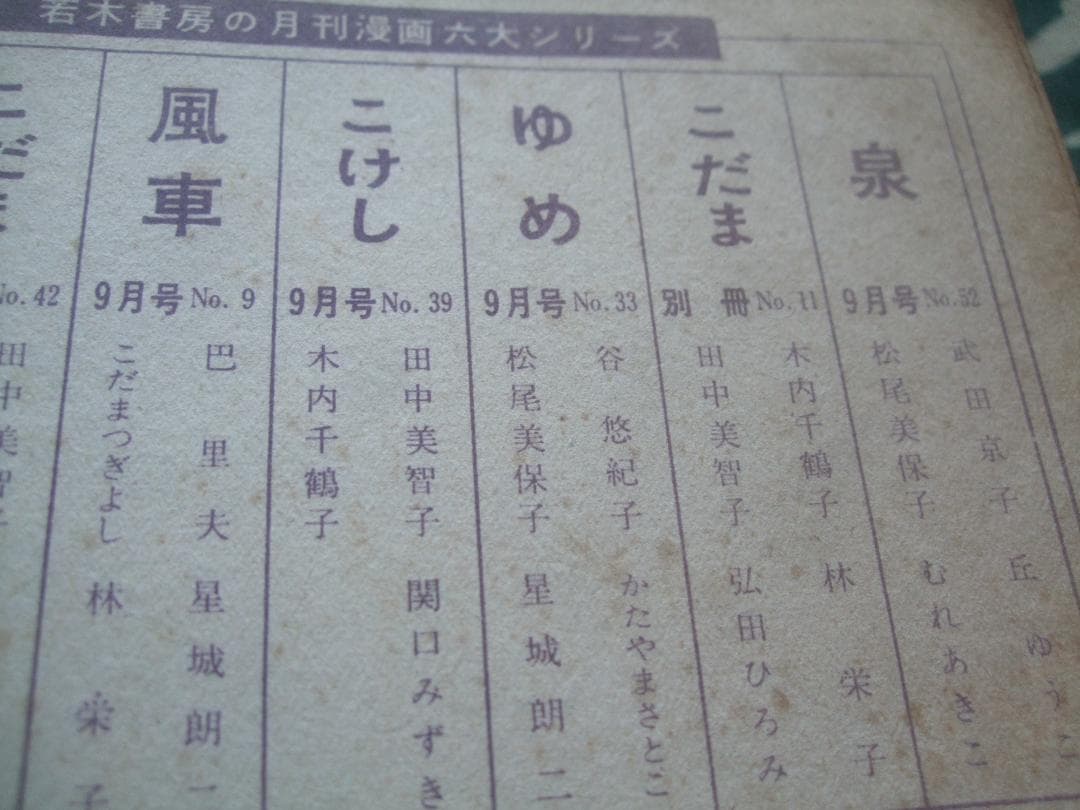 若木書房の月刊漫画六大シリーズ
泉
9月号 No.52
武田京子
丘ゆうこ
松尾美保子
むれあきこ
こだま
別冊 No.11
木内千鶴子
林栄子
田中美智子
弘田ひろみ
ゆめ
9月号 No.33
谷悠紀子
かたやまさとこ
松尾美保子
星城朗二
こけし
9月号 No.39
田中美智子
関口みずき
木内千鶴子
風車
9月号 No.9
巴里夫
星城朗二
こだまつぎよし
林栄子
こだま
No.42
田中美智子